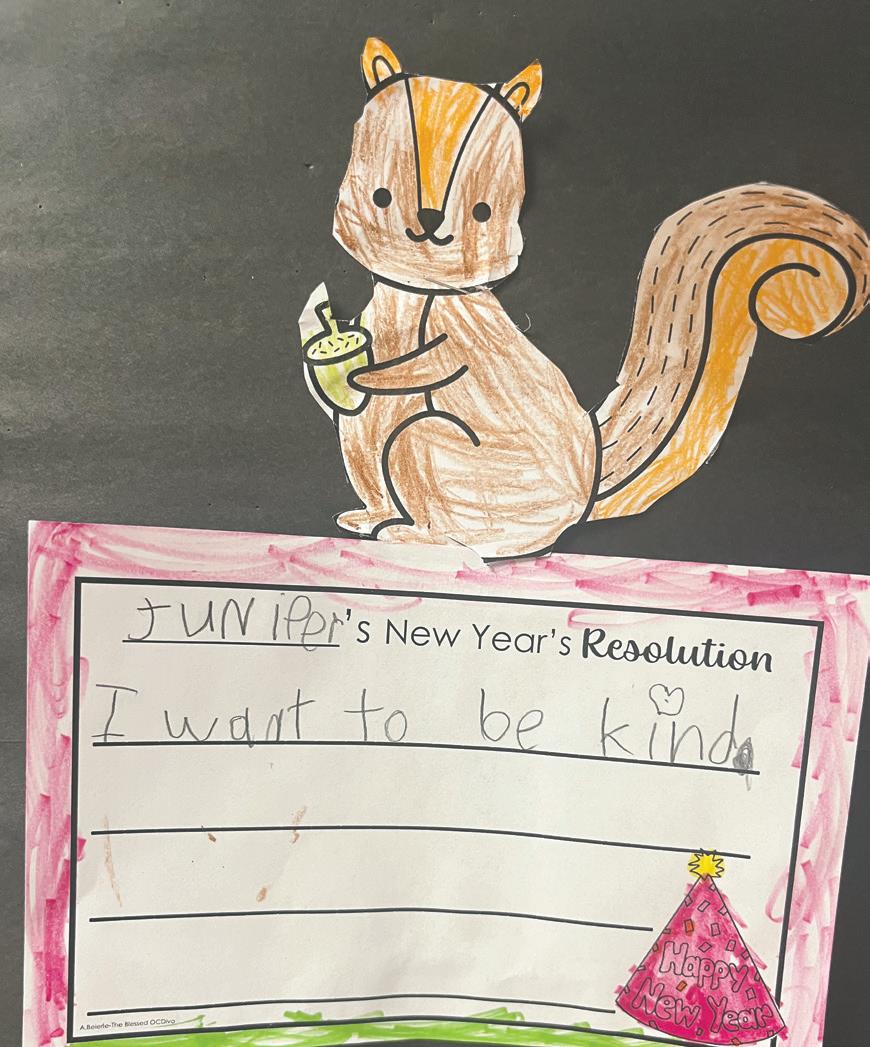 JUNiPer's New Year's Resolution
I want to be kind.
Happy
New Year
A.Beierle-The Blessed OCDiva